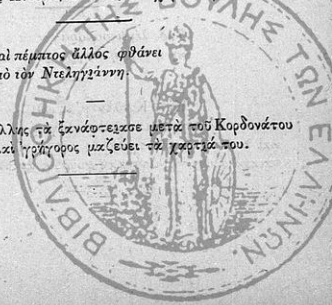 αὶ πέμπτος ἄλλος φθάνει
πὸ τὸν Ντεληγιάννη.
λλης τὰ ξανάφτειασε μετὰ τοῦ Κορδονάτου
αὶ γρήγορος μαζεύει τὰ χαρτιά του.
ΒΙΒΛΙΟΘΗΚΗ ΤΗΣ ΒΟΥΛΗΣ ΤΩΝ ΕΛΛΗΝΩΝ